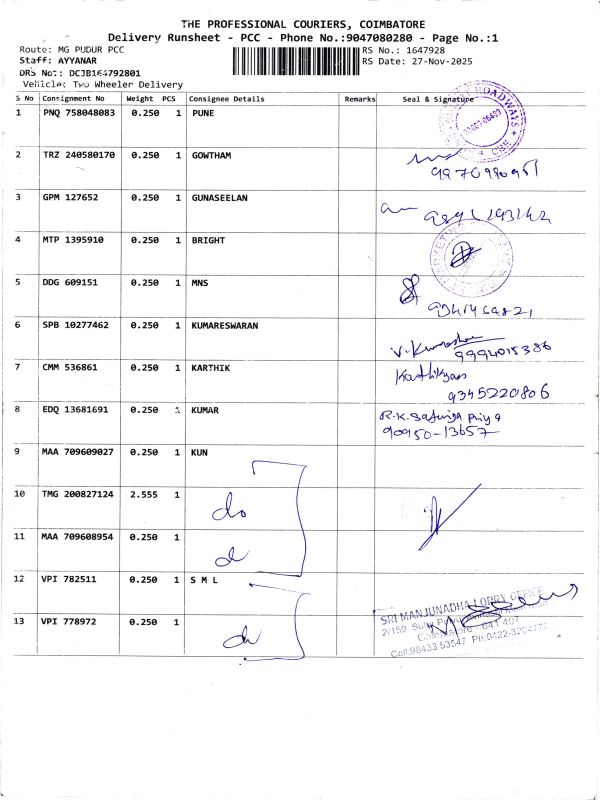 THE PROFESSIONAL COURIERS, COIMBATORE
Delivery Runsheet - PCC - Phone No.:9047080280 - Page No.:1
Route: MG PUDUR PCC
RS No.: 1647928
Staff: AYYANAR
RS Date: 27-Nov-2025
DRS No.: DCJB164792801
Vehicle: Two Wheeler Delivery
S No Consignment No Weight PCS Consignee Details Remarks Seal & Signature
1 PNQ 758048083 0.250 1 PUNE
ROADWAYS
CBE
2 TRZ 240580170 0.250 1 GOWTHAM
3 GPM 127652 0.250 1 GUNASEELAN
4 MTP 1395910 0.250 1 BRIGHT
5 DDG 609151 0.250 1 MNS
6 SPB 10277462 0.250 1 KUMARESWARAN
9994015386
7 CMM 536861 0.250 1 KARTHIK
Karthikyan
9345220806
8 EDQ 13681691 0.250 1 KUMAR
R.K. Sathiya Priya
90950-13657
9 MAA 709609027 0.250 1 KUN
10 TMG 200827124 2.555 1 do
11 MAA 709608954 0.250 1 d
12 VPI 782511 0.250 1 S M L
13 VPI 778972 0.250 1 do
SRI MANJUNADHA LORRY OFFICE
Coimbatore - 641 407
Cell:98433 53547 Ph:0422-